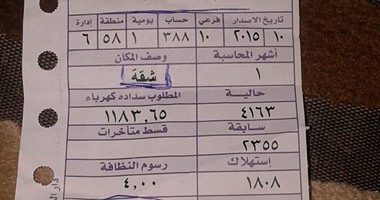 تاريخ الاصدار فرعي حساب يومية منطقة إدارة
١٠ ٢٠١٥ ١٠ ٣٨٨ ١ ٥٨ ٦
أشهر المحاسبة وصف المكان
١ شقة
حالية المطلوب سداده كهرباء
٤١٦٣ ١١٨٣,٦٥
سابقة قسط متأخرات
٢٣٥٥
إستهلاك رسوم النظافة
١٨٠٨ ٤,٠٠